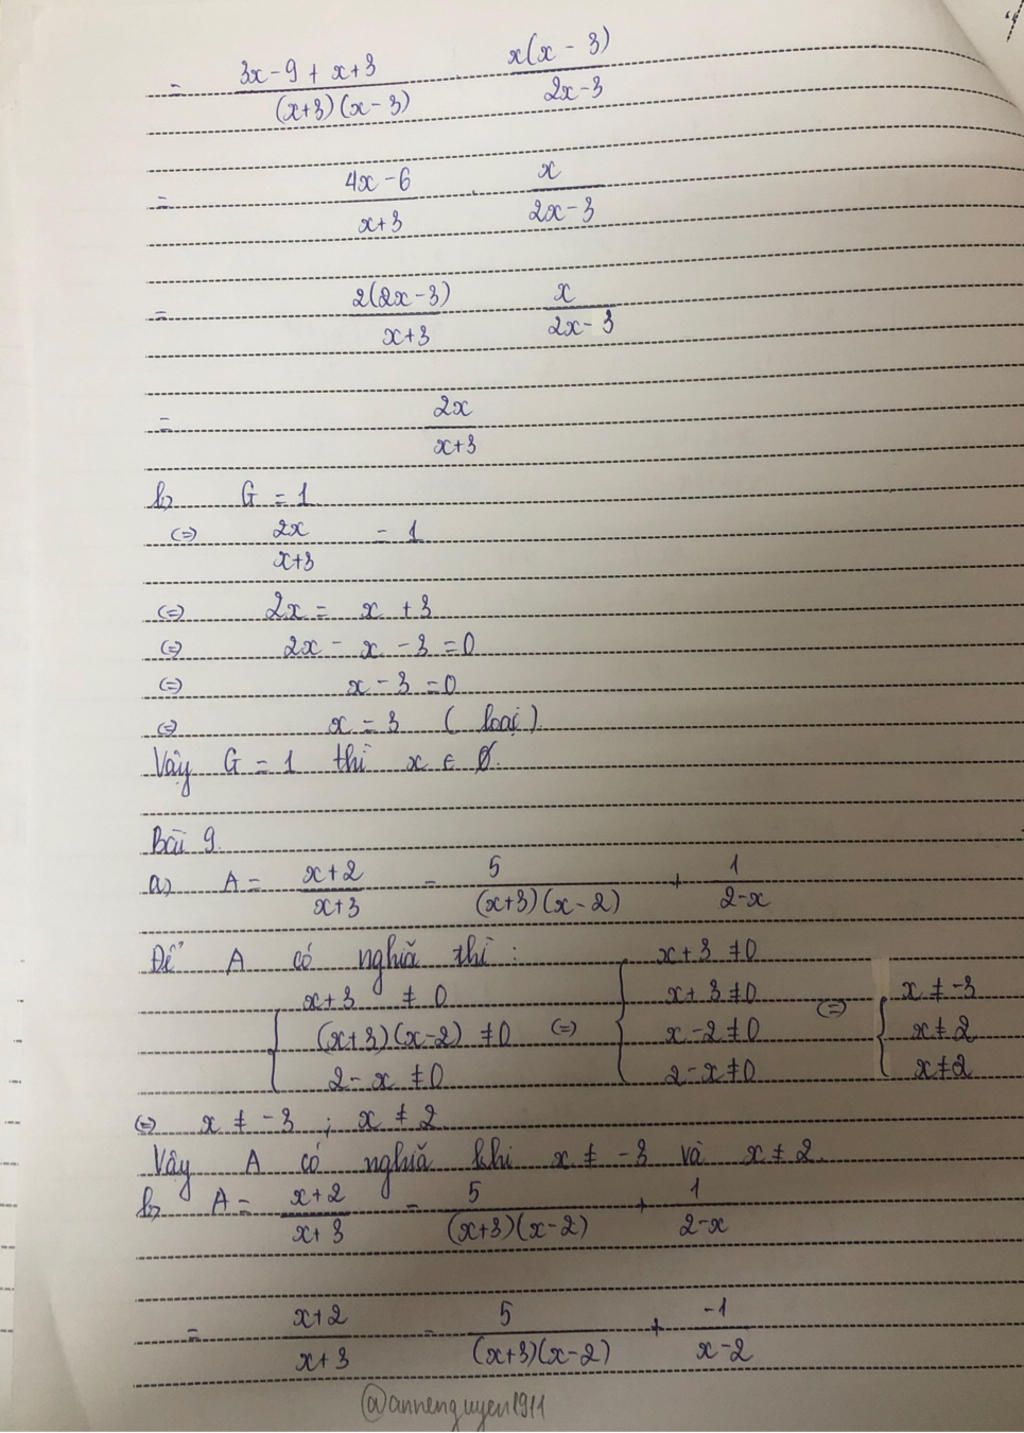 = (3x-9 + x+3)/((x+3)(x-3)) . x(x-3)/(2x-3)
= (4x-6)/(x+3) . x/(2x-3)
= 2(2x-3)/(x+3) x/(2x-3)
= 2x/(x+3)
b, G = 1
(=) 2x/(x+3) = 1
(=) 2x = x + 3
(=) 2x - x - 3 = 0
(=) x - 3 = 0
(=) x = 3 ( loại ).
Vậy G = 1 thì x ∈ ∅.
Bài 9.
a, A = (x+2)/(x+3) - 5/((x+3)(x-2)) + 1/(2-x)
Để A có nghĩa thì :
{ x+3 ≠ 0 ; (x+3)(x-2) ≠ 0 ; 2-x ≠ 0 (=) { x+3 ≠ 0 ; x+3 ≠ 0 ; x-2 ≠ 0 ; 2-x ≠ 0 (=) { x ≠ -3 ; x ≠ 2 ; x ≠ 2
(=) x ≠ -3 ; x ≠ 2
Vậy A có nghĩa khi x ≠ -3 và x ≠ 2.
b, A = (x+2)/(x+3) - 5/((x+3)(x-2)) + 1/(2-x)
= (x+2)/(x+3) - 5/((x+3)(x-2)) + -1/(x-2)
@annenguyen1911